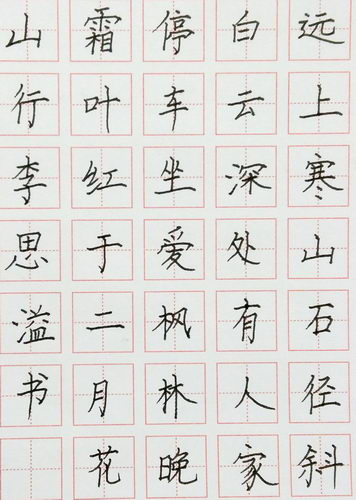 远上寒山石径斜
白云深处有人家
停车坐爱枫林晚
霜叶红于二月花
山行李思溢书